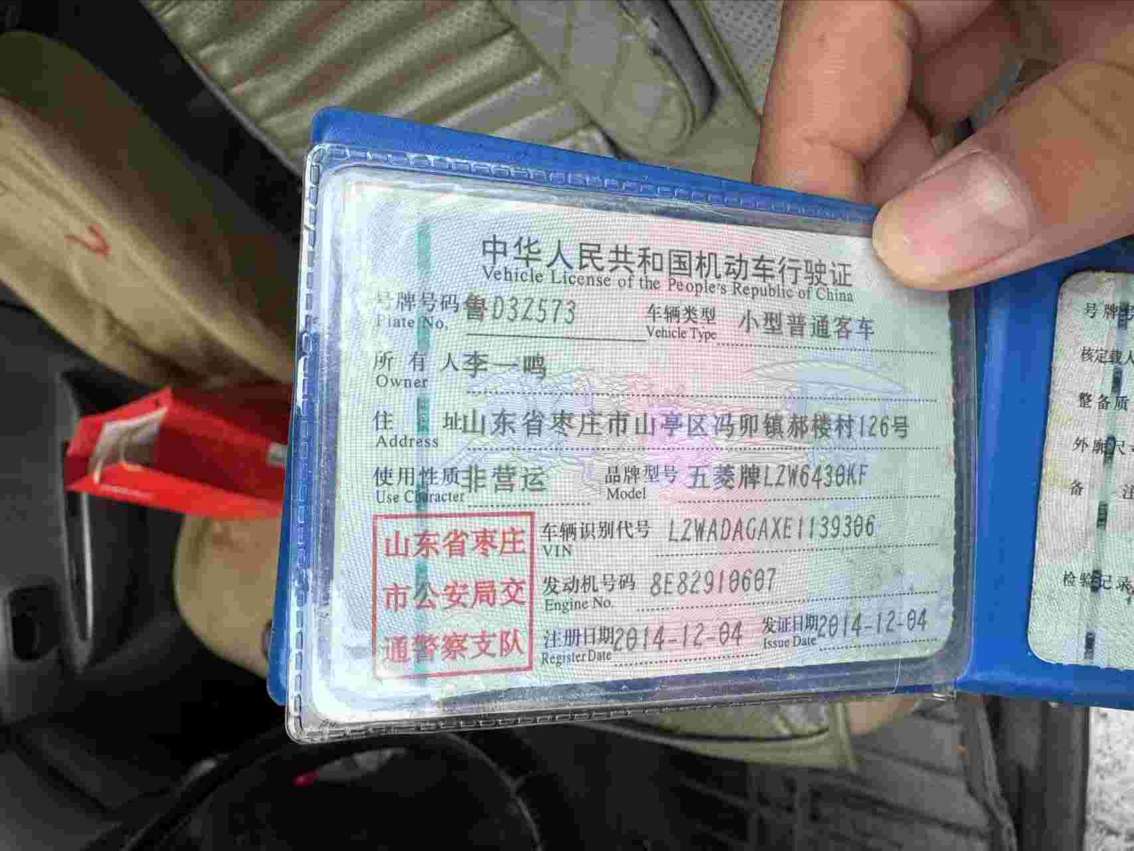 中华人民共和国机动车行驶证
Vehicle License of the People's Republic of China
号牌号码 鲁D3Z573 车辆类型 小型普通客车
Plate No. Vehicle Type
所有人 李一鸣
Owner
住址 山东省枣庄市山亭区冯卯镇郝楼村126号
Address
使用性质 非营运 品牌型号 五菱牌LZW6430KF
Use Character Model
山东省枣庄
市公安局交
通警察支队
车辆识别代号 LZWADAGAXE1139306
VIN
发动机号码 8E82910607
Engine No.
注册日期 2014-12-04 发证日期 2014-12-04
Register Date Issue Date
号牌
核定载人
整备质
外廓尺
备 注
检验记录